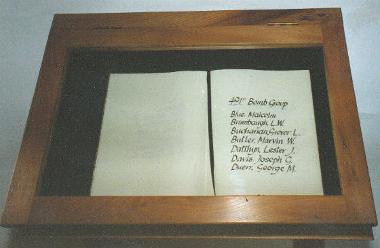 491" Bomb Group
Blue, Malcolm
Brumbaugh, L.W.
Buchanan, Grover L.
Butler, Marvin W.
Lester J.
Davis, Joseph G.
Duerr, George M.